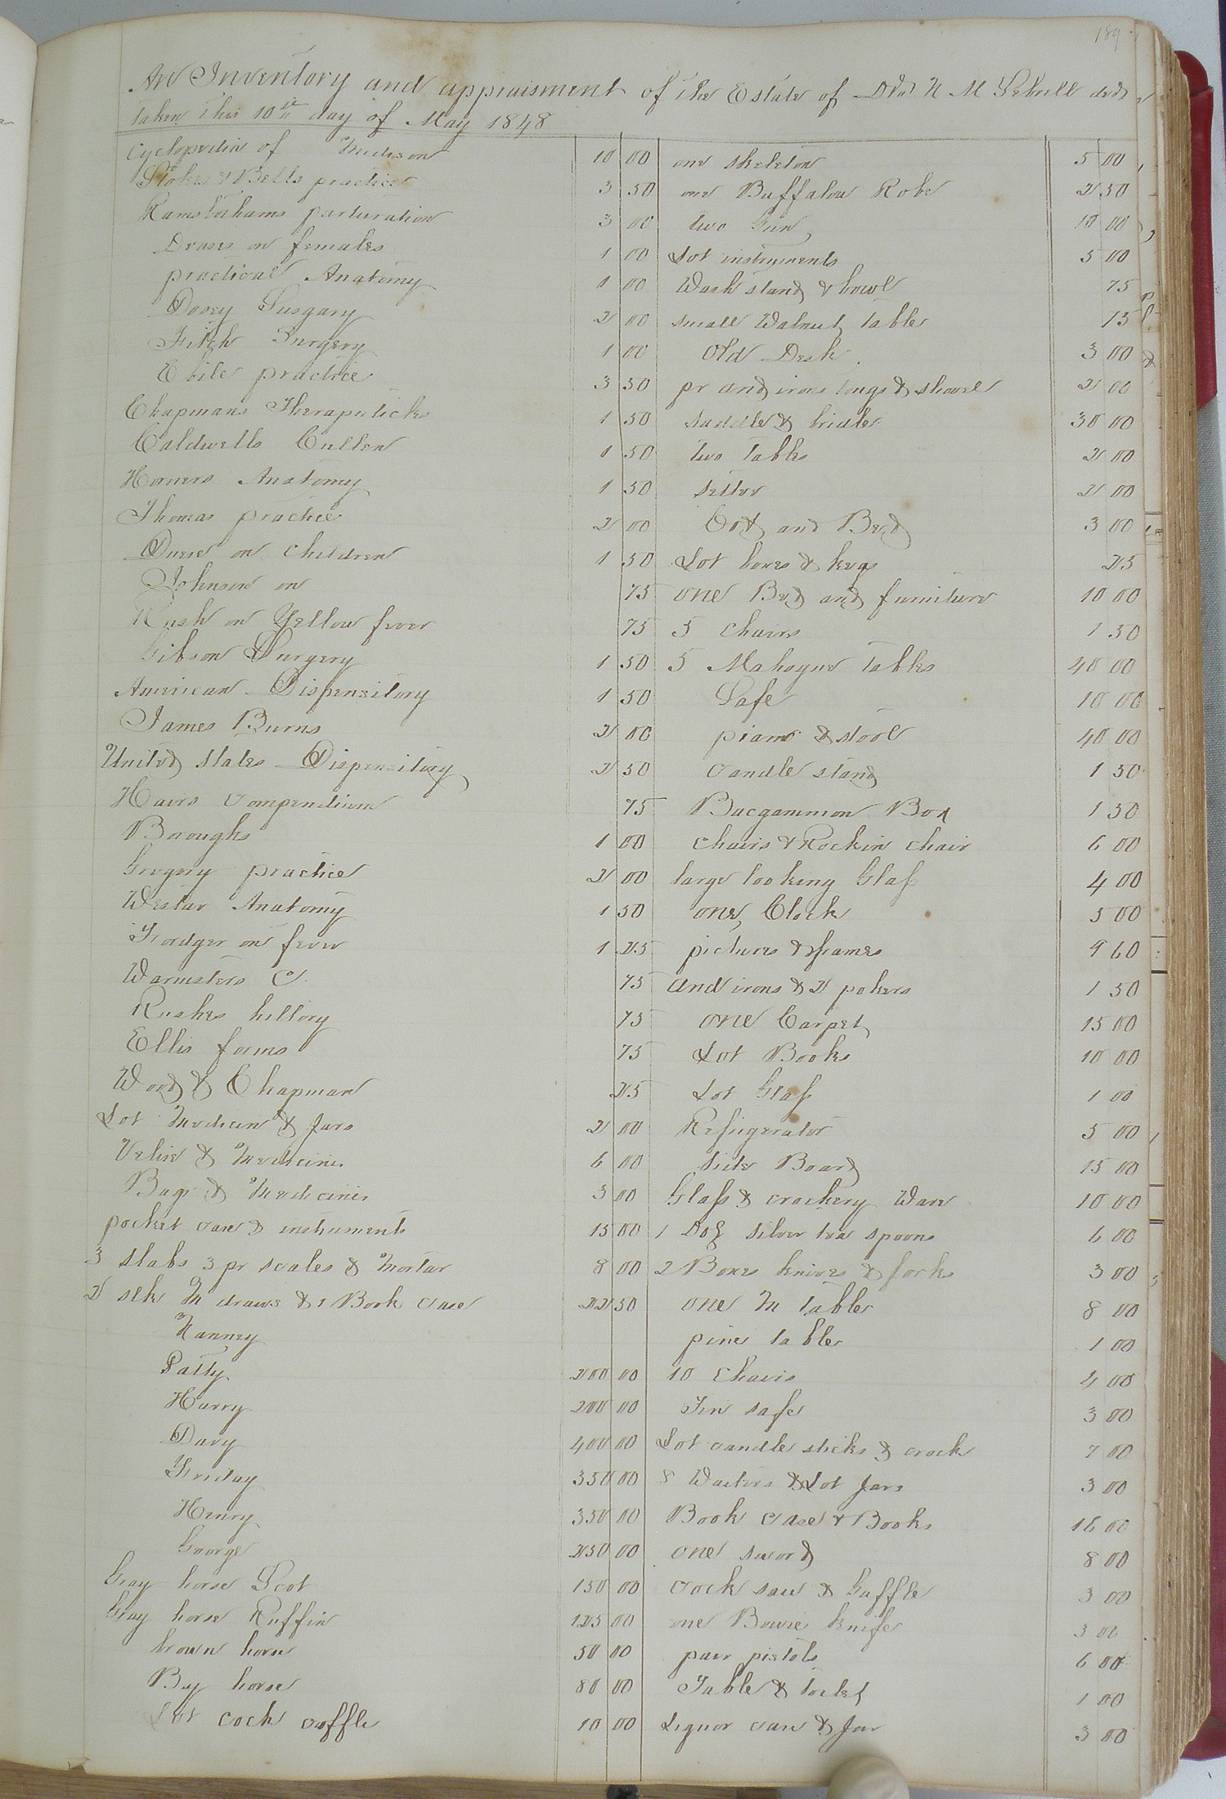 189
An Inventory and appraisment of the Estate of N M decd
taken this 10th day of May 1848
Cyclopedia of Medison 10 00
Stokes & Bells practice 3 50
Ramsbothams parturation 3 00
Dewes on females 1 00
practical Anatomy 1 00
Dorsy Surgary 2 00
Surgery 1 00
Eberle practice 3 50
Chapmans Theraputicks 1 50
Caldwells Cullen 1 50
Horners Anatomy 1 50
Thomas practice 2 00
Duese on children 1 50
Johnson on 75
Rush on Yellow fever 75
Gibson Surgery 1 50
American Dispensitory 1 50
James Burns 2 00
United States Dispensitory 2 50
compendium 75
Boroughs 1 00
Gregory practice 2 00
Westar Anatomy 1 50
Fordger on fever 1 25
75
Rushes hillory 75
Ellis forms 75
Wood & Chapman 25
Lot Medicin & Jars 2 00
Velise & Medicine 6 00
Bags & Medicines 3 00
pocket case & instruments 15 00
3 slabs 3 pr scales & Mortar 8 00
2 sek M draws & 1 Book case 22 50
Nanney
Patty 200 00
Harry 200 00
Davy 400 00
Friday 350 00
Henry 350 00
George 250 00
Gray horse Scot 150 00
Gray horse Ruffin 125 00
brown horse 50 00
Bay horse 80 00
Lot cock coffle 10 00
one skeleton 5 00
one Buffalow Robe 2 50
two Guns 10 00
Lot instruments 5 00
Wash stand & bowl 75
small Walnut table 15
Old Desk 3 00
pr and irons tongs & shovel 2 00
saddle & bridle 30 00
two Tables 2 00
settee 2 00
Cot and Bed 3 00
Lot boxes & kegs 25
one Bed and furniture 10 00
5 chairs 1 50
5 Mahogne Tables 40 00
Safe 10 00
piano & stool 40 00
candle stand 1 50
Bacgammon Box 1 50
chairs & Rockin chair 6 00
large looking Glass 4 00
one Clock 5 00
pictures & frames 9 60
and irons & 2 pokers 1 50
one Carpet 15 00
Lot Books 10 00
Lot Glass 1 00
Refrigerator 5 00
Side Board 15 00
Glass & crockery Ware 10 00
1 Doz silver tea spoons 6 00
2 Boxes knives & forks 3 00
one M table 8 00
pine table 1 00
10 Chairs 4 00
Tin safe 3 00
Lot candle sticks & crock 7 00
8 Waiters & Lot Jars 3 00
Book case & Books 16 00
one sword 8 00
cock saw & Gaffle 3 00
one Bowie knife 3 00
pair pistols 6 00
Table & 1 00
Liquor case & Jar 3 00